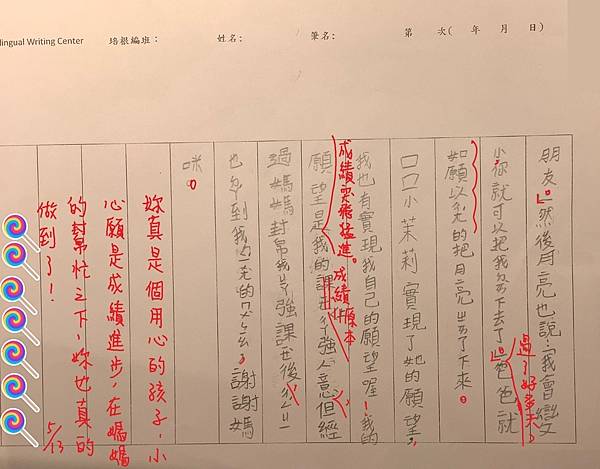 lingual Writing Center 培根編班： 姓名： 筆名： 第 次( 年 月 日)
朋友。」然後月亮也說：「我會變
小,你就可以把我下去了。」爸爸就
過了好幾天,
如願以的把月亮了下來。
口口小茉莉實現了她的願望,
我也有實現我自己的願望喔！我的
成績突飛猛進。成績原本
願望是我的課強人意但經
過媽媽幫我強課後
也到我的謝謝媽
咪。
妳真是個用心的孩子,小
心願是成績進步,在媽媽
的幫忙之下,妳也真的
做到了！
5/13